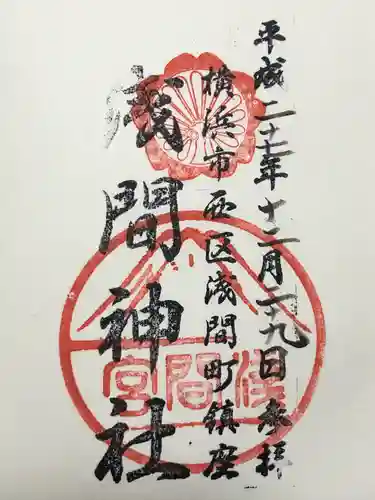 平成二十七年十二月二十九日参拝
横浜市西区浅間町鎮座
浅間神社
浅間宮